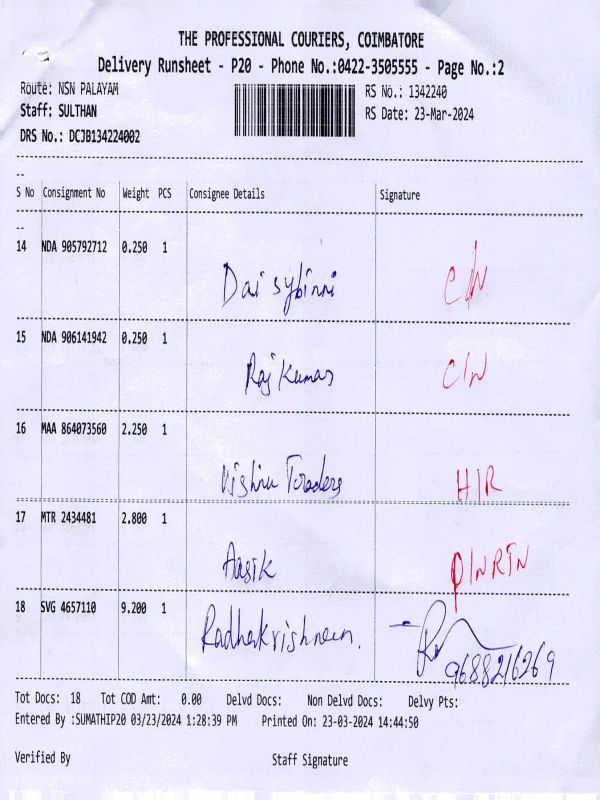 THE PROFESSIONAL COURIERS, COIMBATORE
Delivery Runsheet - P20 - Phone No.:0422-3505555 - Page No.:2
Route: NSN PALAYAM RS No.: 1342240
Staff: SULTHAN RS Date: 23-Mar-2024
DRS No.: DCJB134224002
S No Consignment No Weight PCS Consignee Details Signature
14 NDA 905792712 0.250 1
Daisybinni C/N
15 NDA 906141942 0.250 1
Raj Kumar C/N
16 MAA 864073560 2.250 1
Vishnu Traders H/R
17 MTR 2434481 2.800 1
Aasik P/NRTN
18 SVG 4657110 9.200 1
Radhakrishnan.
9688216269
Tot Docs: 18 Tot COD Amt: 0.00 Delvd Docs: Non Delvd Docs: Delvy Pts:
Entered By :SUMATHIP20 03/23/2024 1:28:39 PM Printed On: 23-03-2024 14:44:50
Verified By Staff Signature